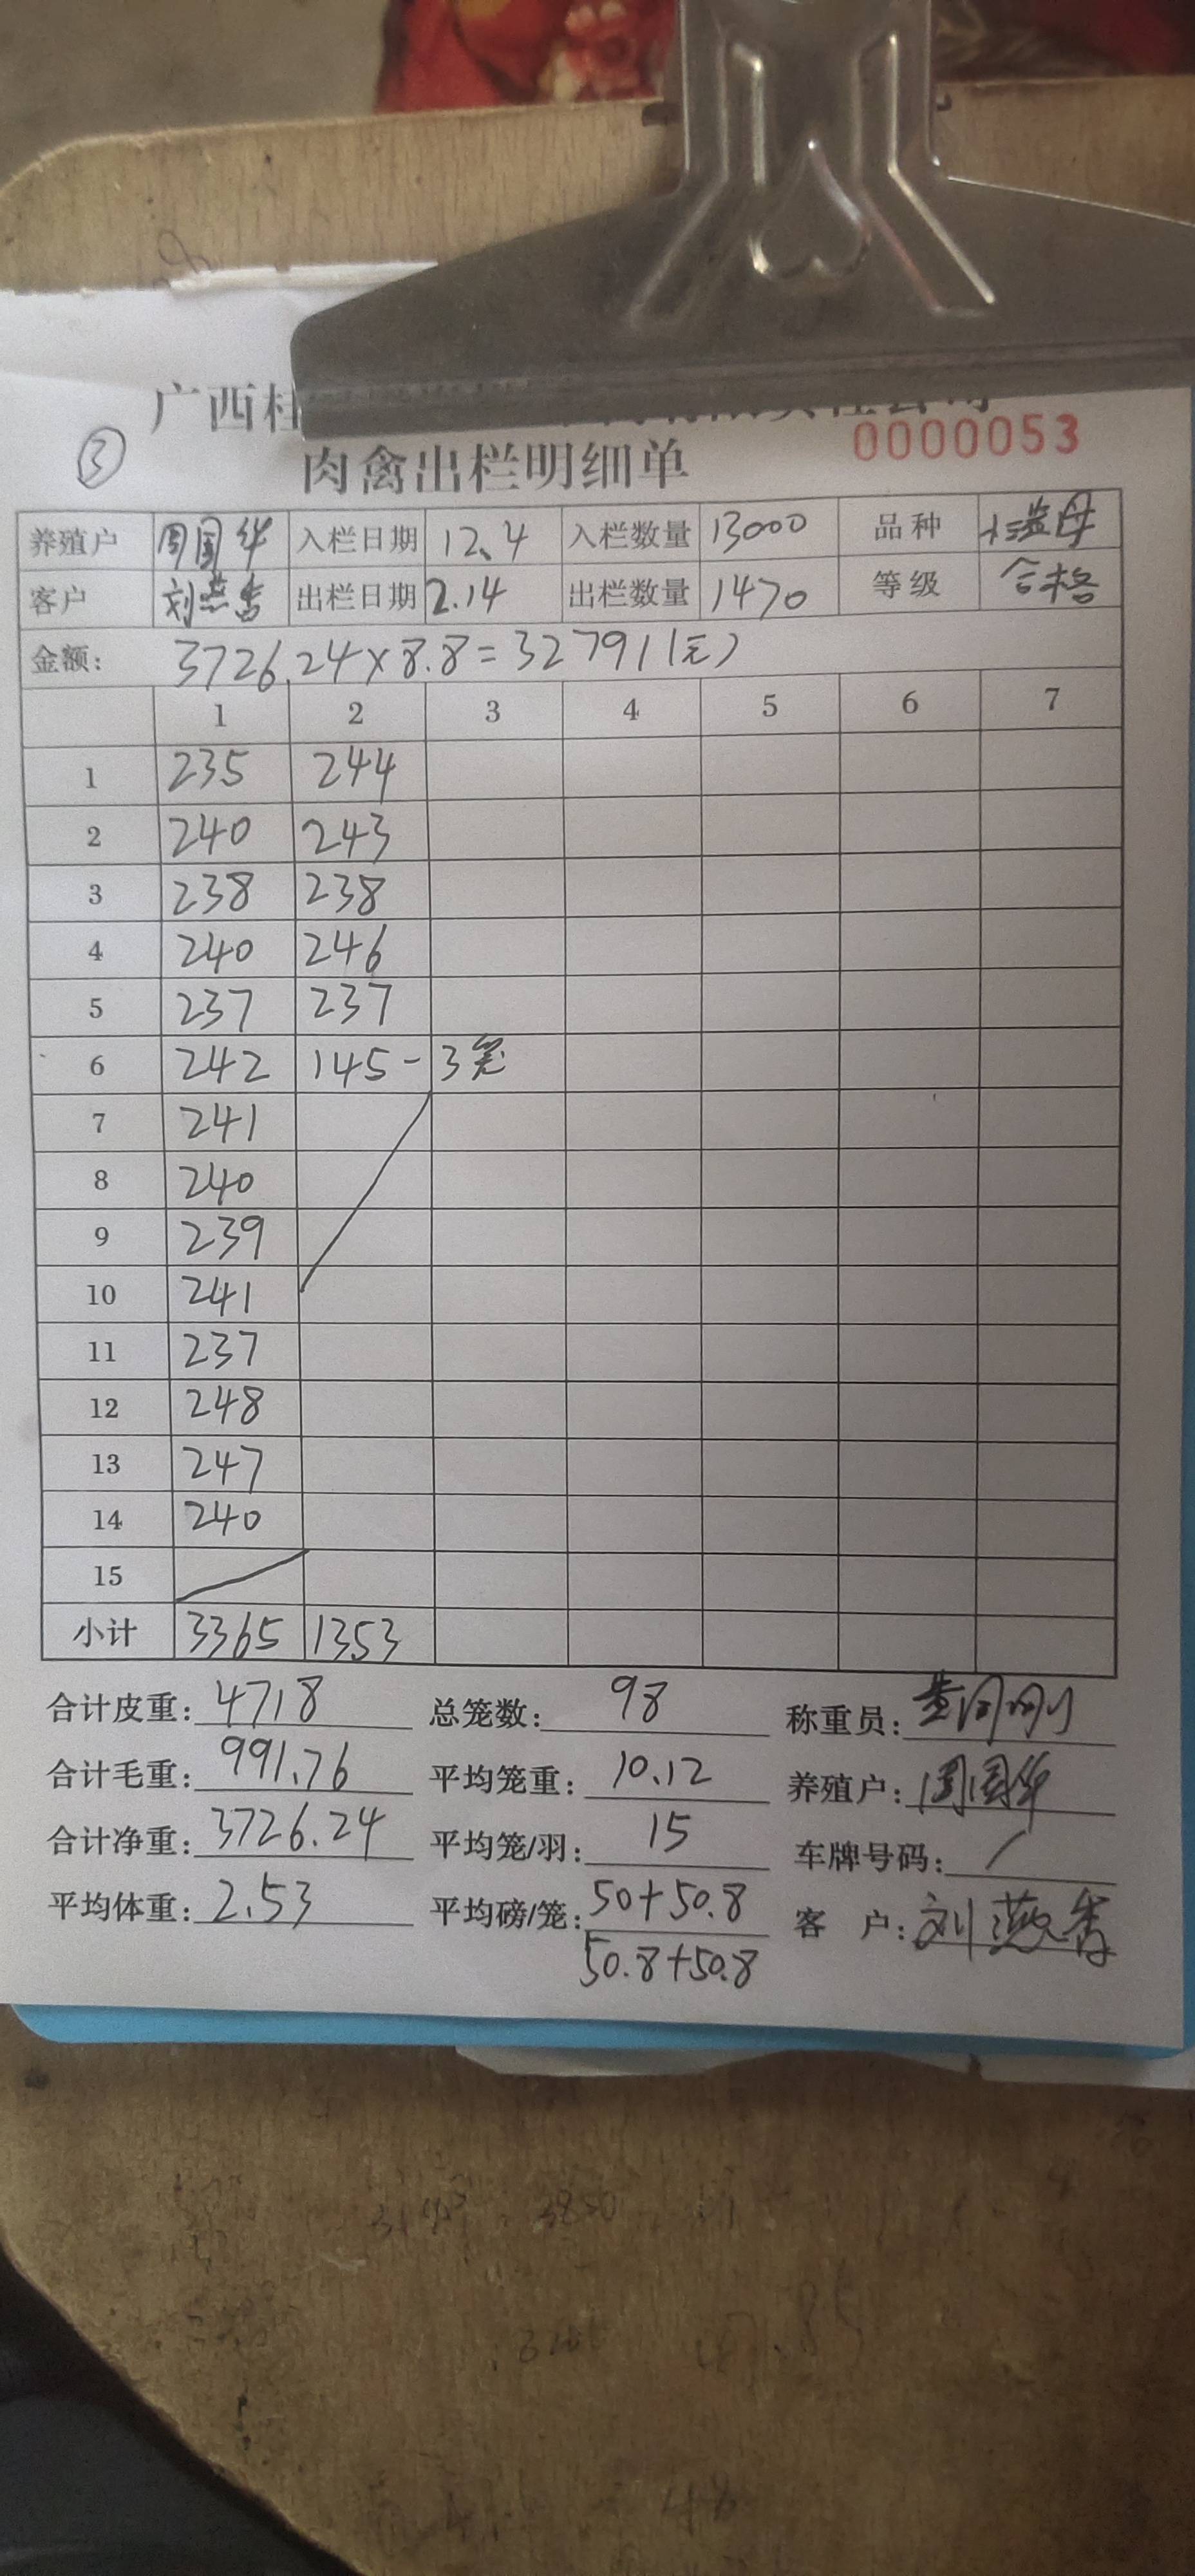 广西桂
公司
③
肉禽出栏明细单
0000053
养殖户 周国华 入栏日期 12.4 入栏数量 13000 品种 母
客户 刘燕香 出栏日期 2.14 出栏数量 1470 等级 合格
金额: 3726.24×8.8=32791(元)
1 2 3 4 5 6 7
1 235 244
2 240 243
3 238 238
4 240 246
5 237 237
6 242 145-3笼
7 241
8 240
9 239
10 241
11 237
12 248
13 247
14 240
15
小计 3365 1353
合计皮重: 4718 总笼数: 98 称重员:
合计毛重: 991.76 平均笼重: 10.12 养殖户: 周国华
合计净重: 3726.24 平均笼/羽: 15 车牌号码: /
平均体重: 2.53 平均磅/笼: 50+50.8 客 户: 刘燕香
50.8+50.8